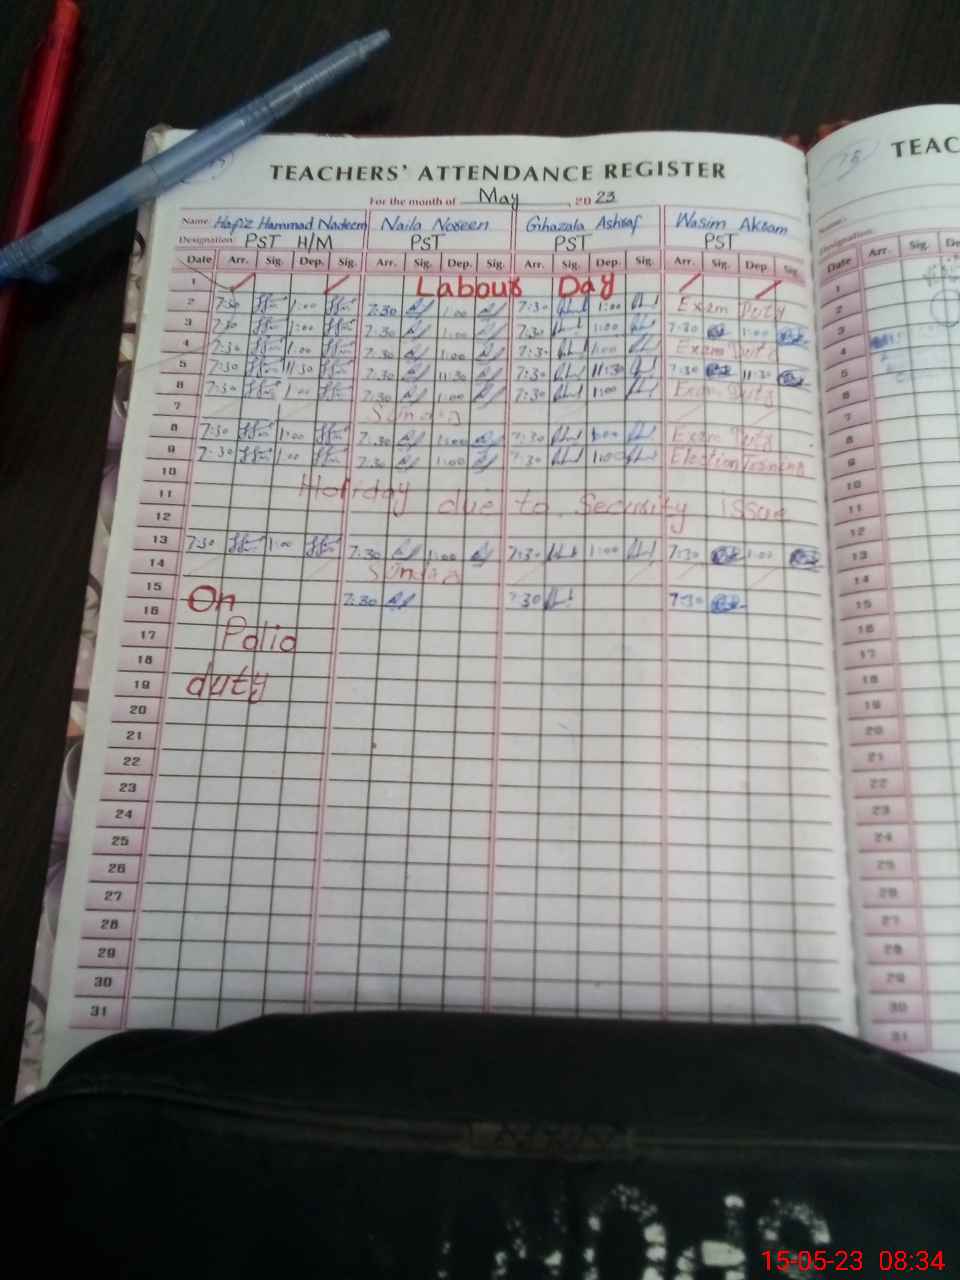 TEACHERS' ATTENDANCE REGISTER
TEAC
For the month of May, 2023
Name: Hafiz Hammad Nadeem Naila Noreen Ghazala Ashraf Wasim Akram
Name:
Designation: PST H/M PST PST PST
Designation:
Date Arr. Sig. Dep. Sig. Arr. Sig. Dep. Sig. Arr. Sig. Dep. Sig. Arr. Sig. Dep. Sig.
Date Arr. Sig. De
1 Labour Day
2 7:30 1:00 7:30 1:00 7:30 1:00 Exam Duty
3 7:30 1:00 7:30 1:00 7:30 1:00 7:30 1:00
4 7:30 1:00 7:30 1:00 7:30 1:00 Exam Duty
5 7:30 11:30 7:30 11:30 7:30 11:30 7:30 11:30
6 7:30 1:00 7:30 1:00 7:30 1:00 Exam Duty
7 Sunday
8 7:30 1:00 7:30 1:00 7:30 1:00 Exam Duty
9 7:30 1:00 7:30 1:00 7:30 1:00 Election Training
10
11 Holiday due to Security issue
12
13 7:30 1:00 7:30 1:00 7:30 1:00 7:30 1:00
14 Sunday
15 On 7:30 7:30 7:30
16
17 Polio
18
19 duty
20
21
22
23
24
25
26
27
28
29
30
31
1
2
3
4
5
6
7
8
9
10
11
12
13
14
15
16
17
18
19
20
21
22
23
24
25
26
27
28
29
30
31
15-05-23 08:34